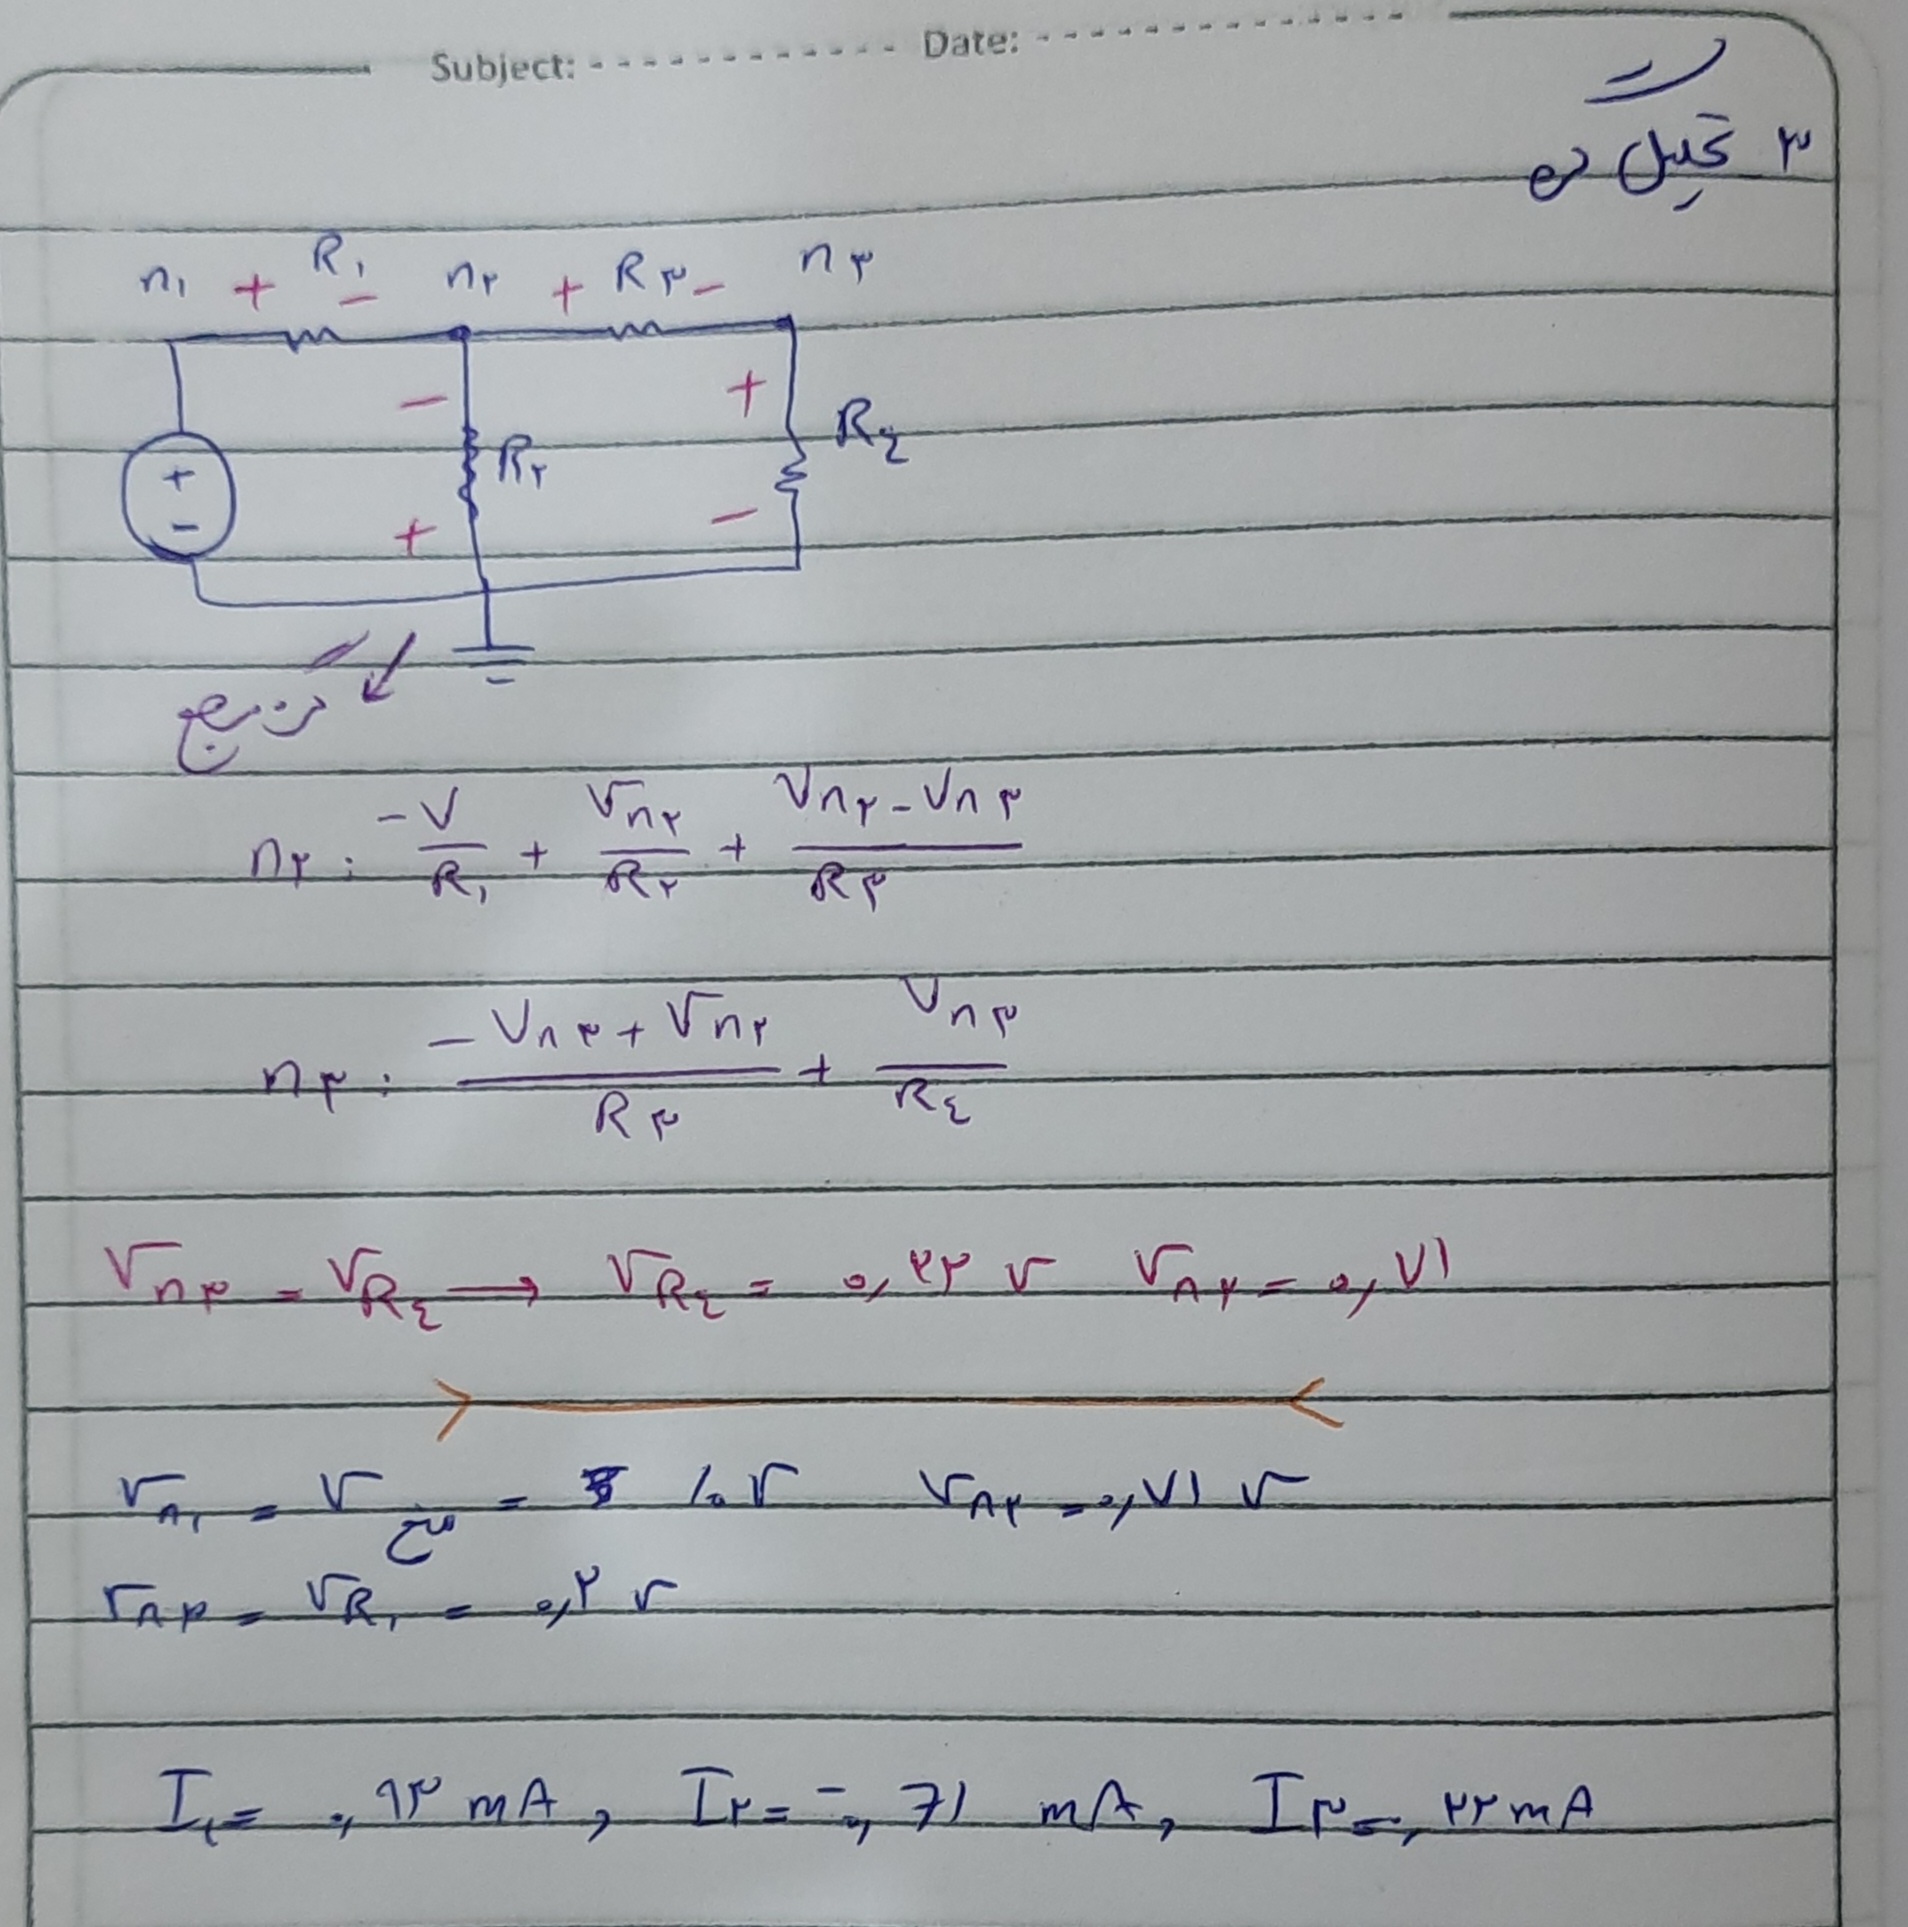 Subject: Date:
۳ تحلیل گره
n۱ + R۱ - n۲ + R۳ - n۳
- +
R۴
+ -
R۲
+ -
n۲: -V/R۱ + Vn۲/R۲ + Vn۲-Vn۳/R۳
n۳: -Vn۳+Vn۲/R۳ + Vn۳/R۴
Vn۳ = VR۴ → VR۴ = ۰,۲۲ V Vn۲ = ۰,۷۱
Vn۱ = V = ۱۰ V Vn۲ = ۰,۷۱ V
Vn۳ = VR۱ = ۰,۲ V
I۱ = ۰,۹۳ mA, I۲ = -۰,71 mA, I۳ = ۰,۲۲ mA